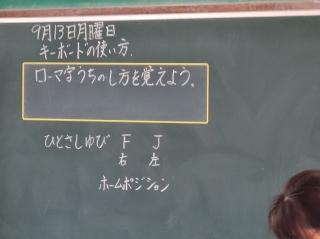 9月13日月曜日
キーボードの使い方.
ローマ字うちのし方を覚えよう。
ひとさしゆび F J
右 左
ホームポジション